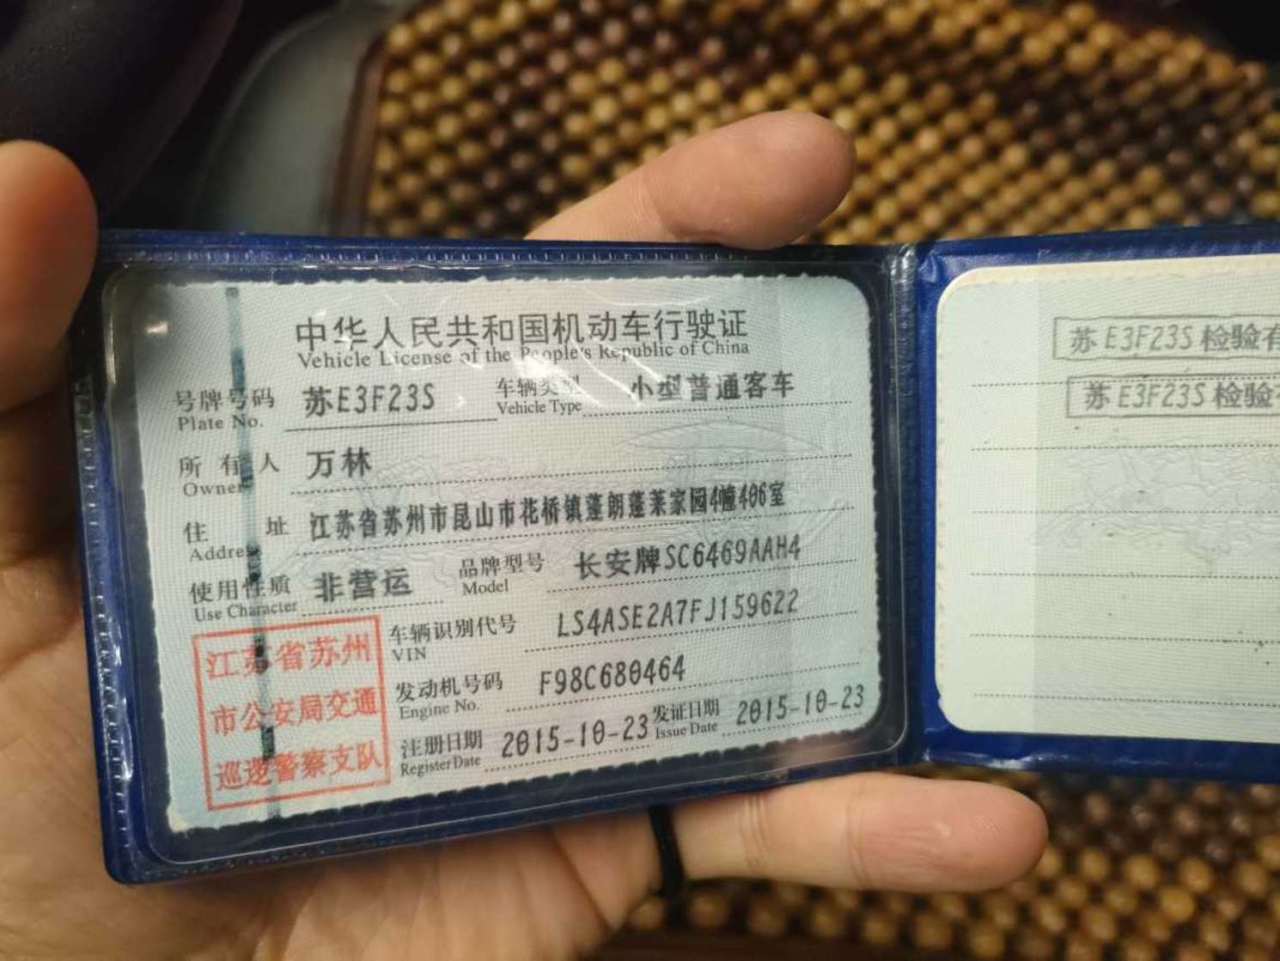 中华人民共和国机动车行驶证
Vehicle License of the People's Republic of China
号牌号码 苏E3F23S 车辆类型 小型普通客车
Plate No. Vehicle Type
所有人 万林
Owner
住址 江苏省苏州市昆山市花桥镇蓬朗蓬莱家园4幢406室
Address
使用性质 非营运 品牌型号 长安牌SC6469AAH4
Use Character Model
车辆识别代号 LS4ASE2A7FJ159622
VIN
发动机号码 F98C680464
Engine No.
注册日期 2015-10-23 发证日期 2015-10-23
Register Date Issue Date
江苏省苏州
市公安局交通
巡逻警察支队
苏E3F23S检验有
苏E3F23S检验